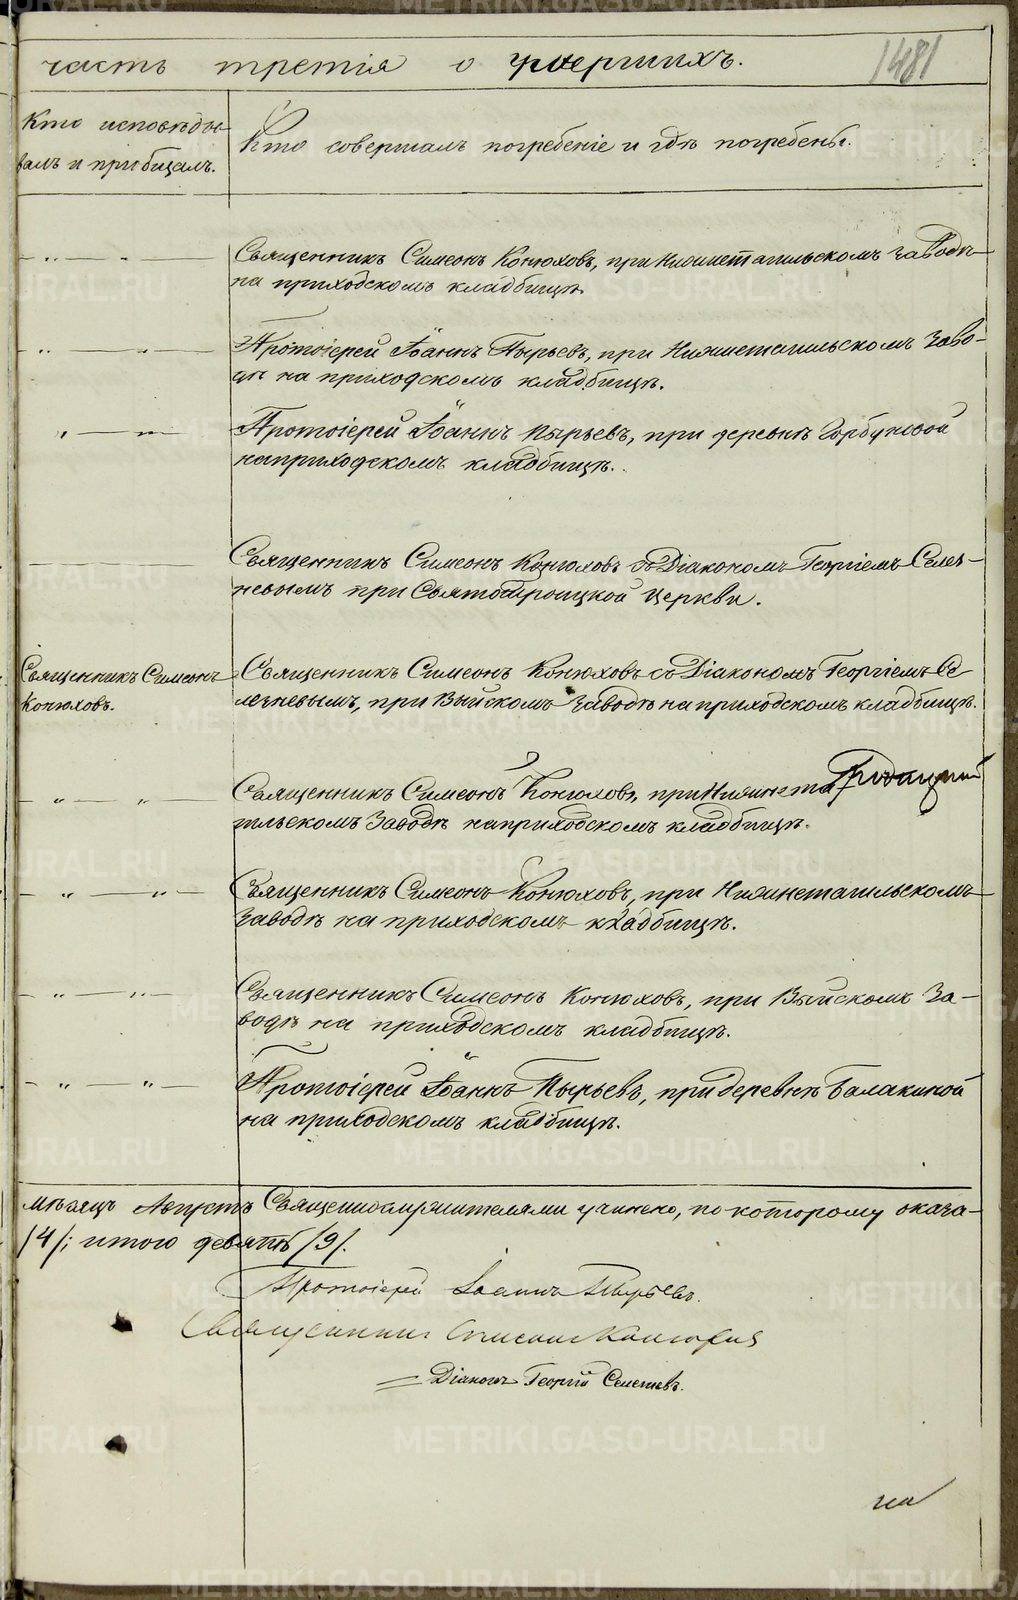 часть третія о умершихъ.
1481
Кто исповѣды-
валъ и пріобщалъ.
Кто совершалъ погребеніе и гдѣ погребены.
Священникъ Симеонъ Конюховъ, при Нижнетагильскомъ заводѣ
на приходскомъ кладбищѣ.
Протоіерей Іоаннъ Пырьевъ, при Нижнетагильскомъ Заво-
дѣ на приходскомъ кладбищѣ.
Протоіерей Іоаннъ Пырьевъ, при деревнѣ Горбуновой
на приходскомъ кладбищѣ.
Священникъ Симеонъ Конюховъ съ Діакономъ Георгіемъ Селез-
невымъ при Святотроицкой Церкви.
Священникъ Симеонъ
Конюховъ.
Священникъ Симеонъ Конюховъ съ Діакономъ Георгіемъ Се
лезневымъ, при Выйскомъ Заводѣ на приходскомъ кладбищѣ.
Священникъ Симеонъ Конюховъ, при Нижнета
гильскомъ Заводѣ на приходскомъ кладбищѣ.
Священникъ Симеонъ Конюховъ, при Нижнетагильскомъ
Заводѣ на приходскомъ кладбищѣ.
Священникъ Симеонъ Конюховъ, при Выйскомъ За-
водѣ на приходскомъ кладбищѣ.
Протоіерей Іоаннъ Пырьевъ, при деревнѣ Балакиной
на приходскомъ кладбищѣ.
мѣсяцъ Августъ Священнослужителями учинено, по которому оказа-
/4/; итого девять /9/.
Протоіерей Іоаннъ Пырьевъ.
Священникъ Симеонъ Конюховъ
Діаконъ Георгій Селезневъ.
на
METRIKI.GASO-URAL.RU